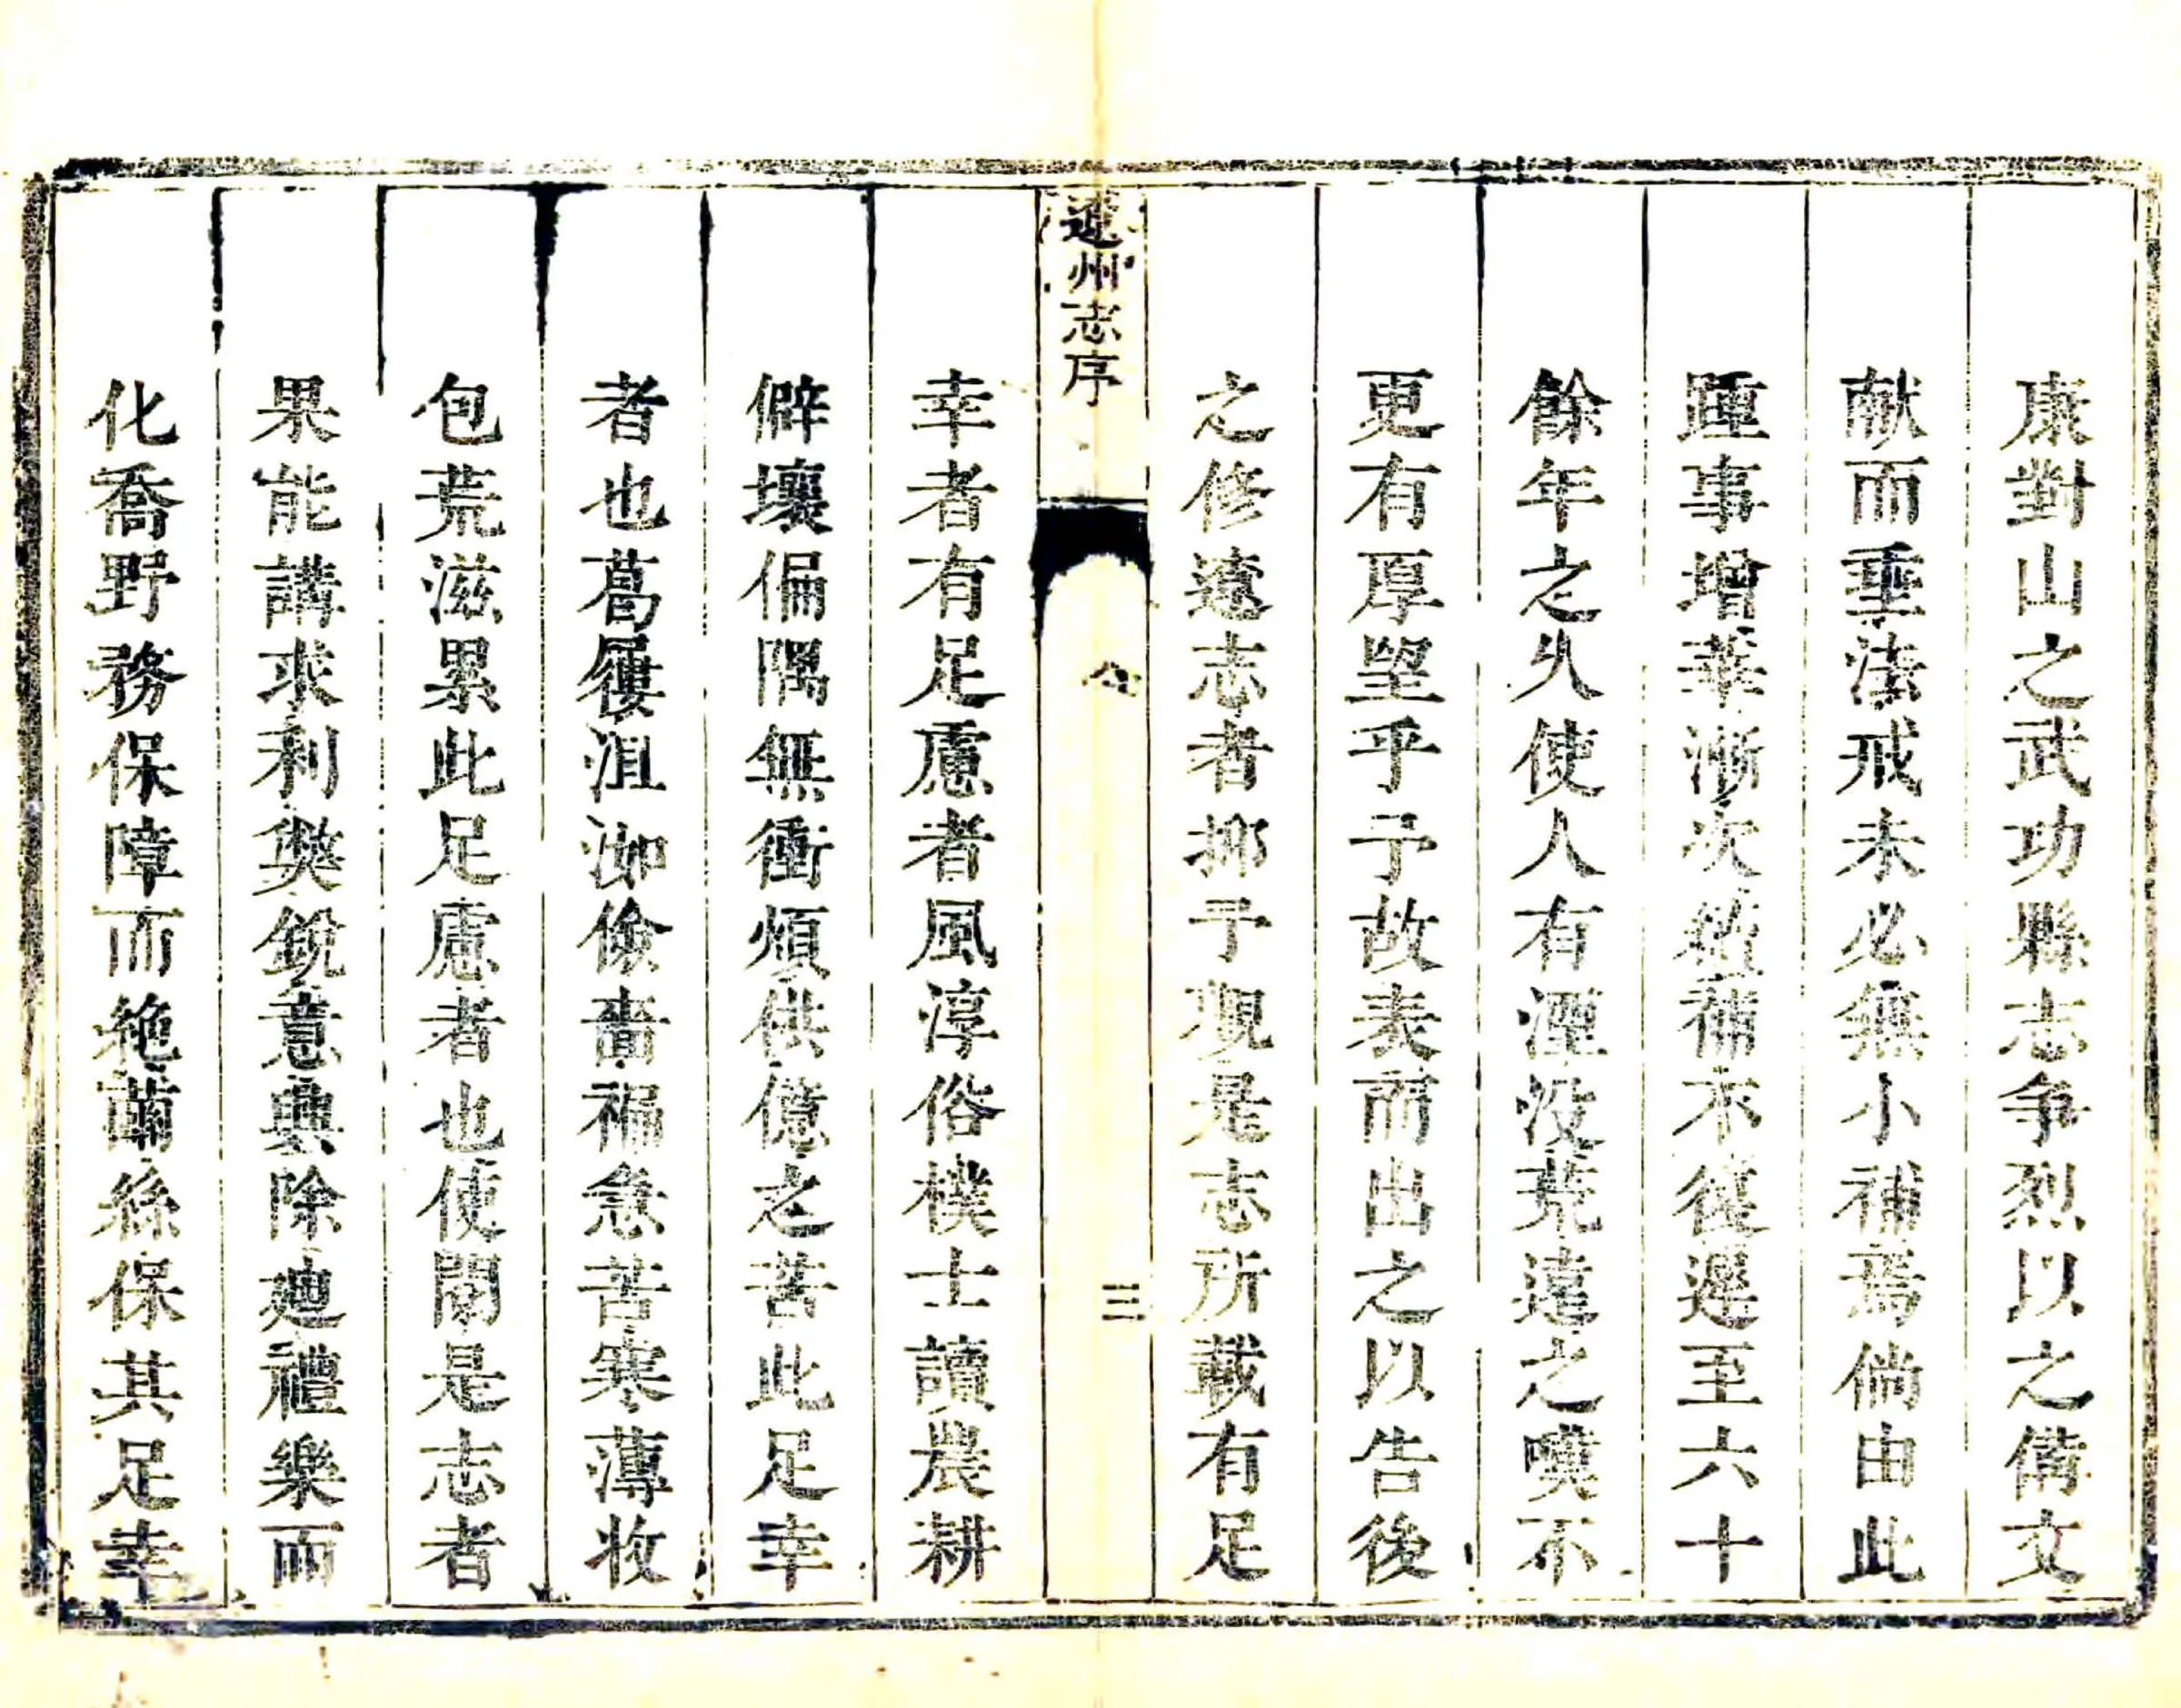 康對山之武功縣志争烈以之備文
献而垂法戒未必無小補焉倘由此
踵事增華漸次續補不復遲至六十
餘年之久使人有湮没荒遠之嘆不
更有厚望乎予故表而出之以告後
之修遼志者抑予觀是志所載有足
遼州志序
三
幸者有足慮者風淳俗樸士讀農耕
僻壤偏隅無衝煩供億之苦此足幸
者也葛屨沮洳儉嗇褊急苦寒薄收
包荒滋累此足慮者也使閱是志者
果能講求利弊銳意興除廸禮樂而
化喬野務保障而絶繭絲保其足幸